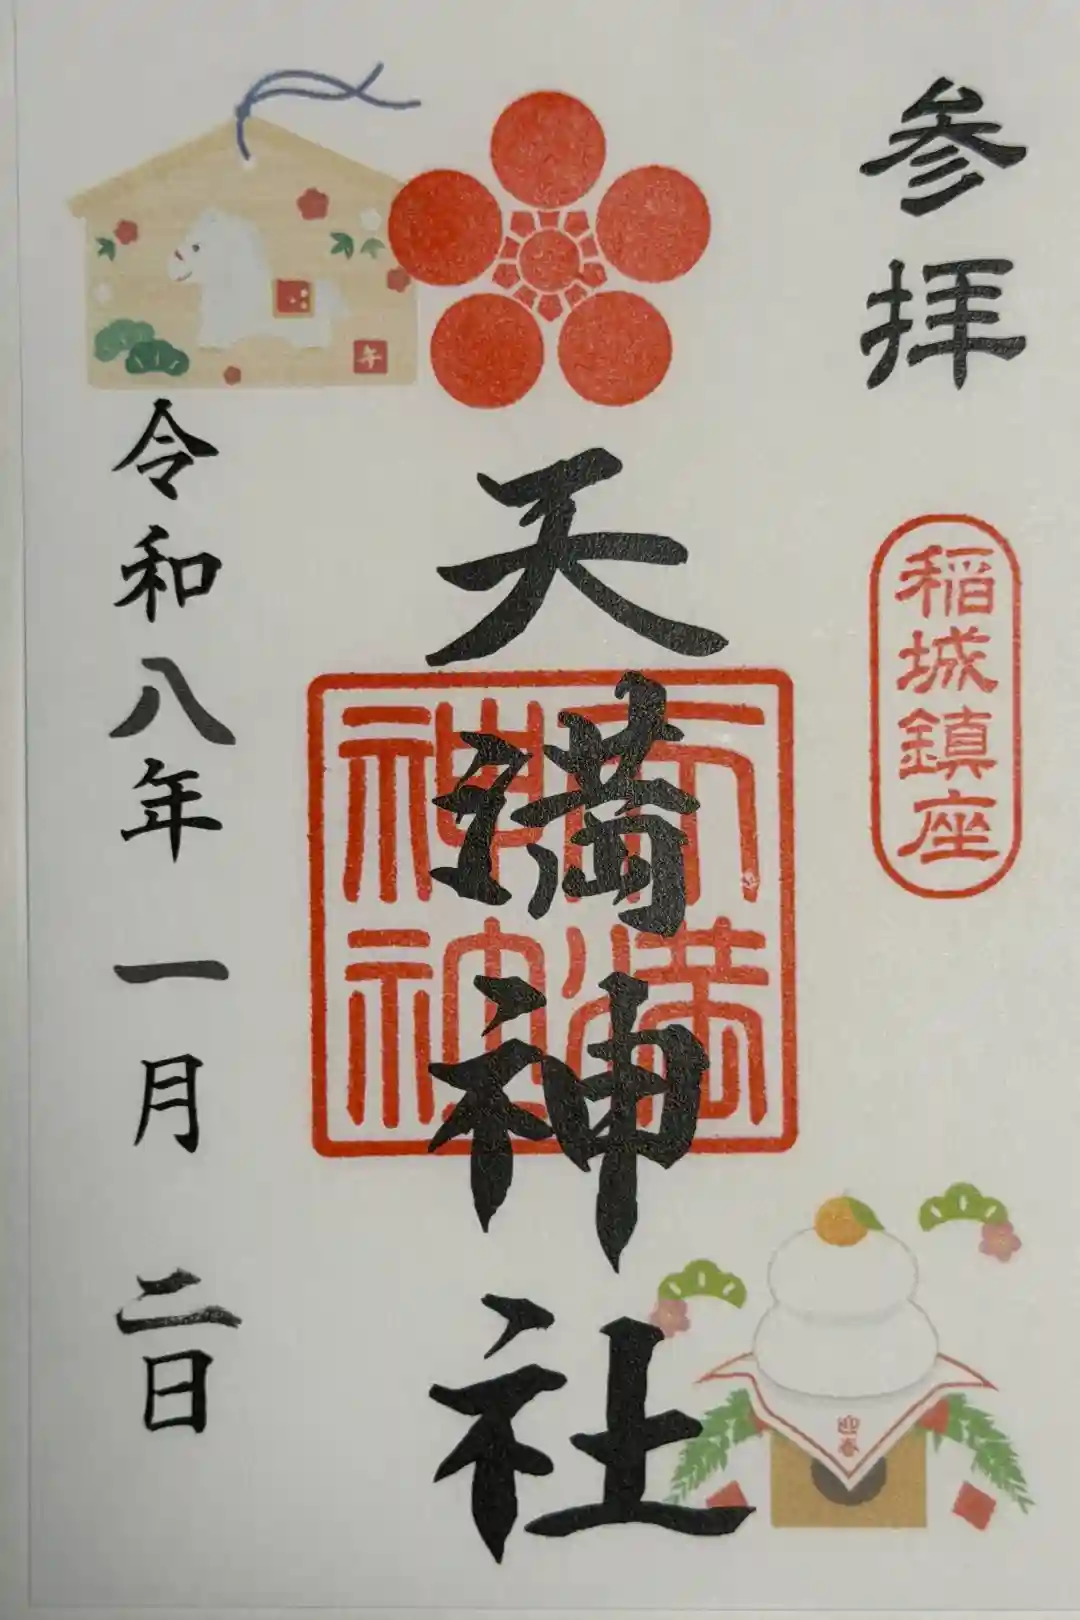 参拝
稲城鎮座
天満神社
天満
神社
令和八年 一月 二日
午
迎春